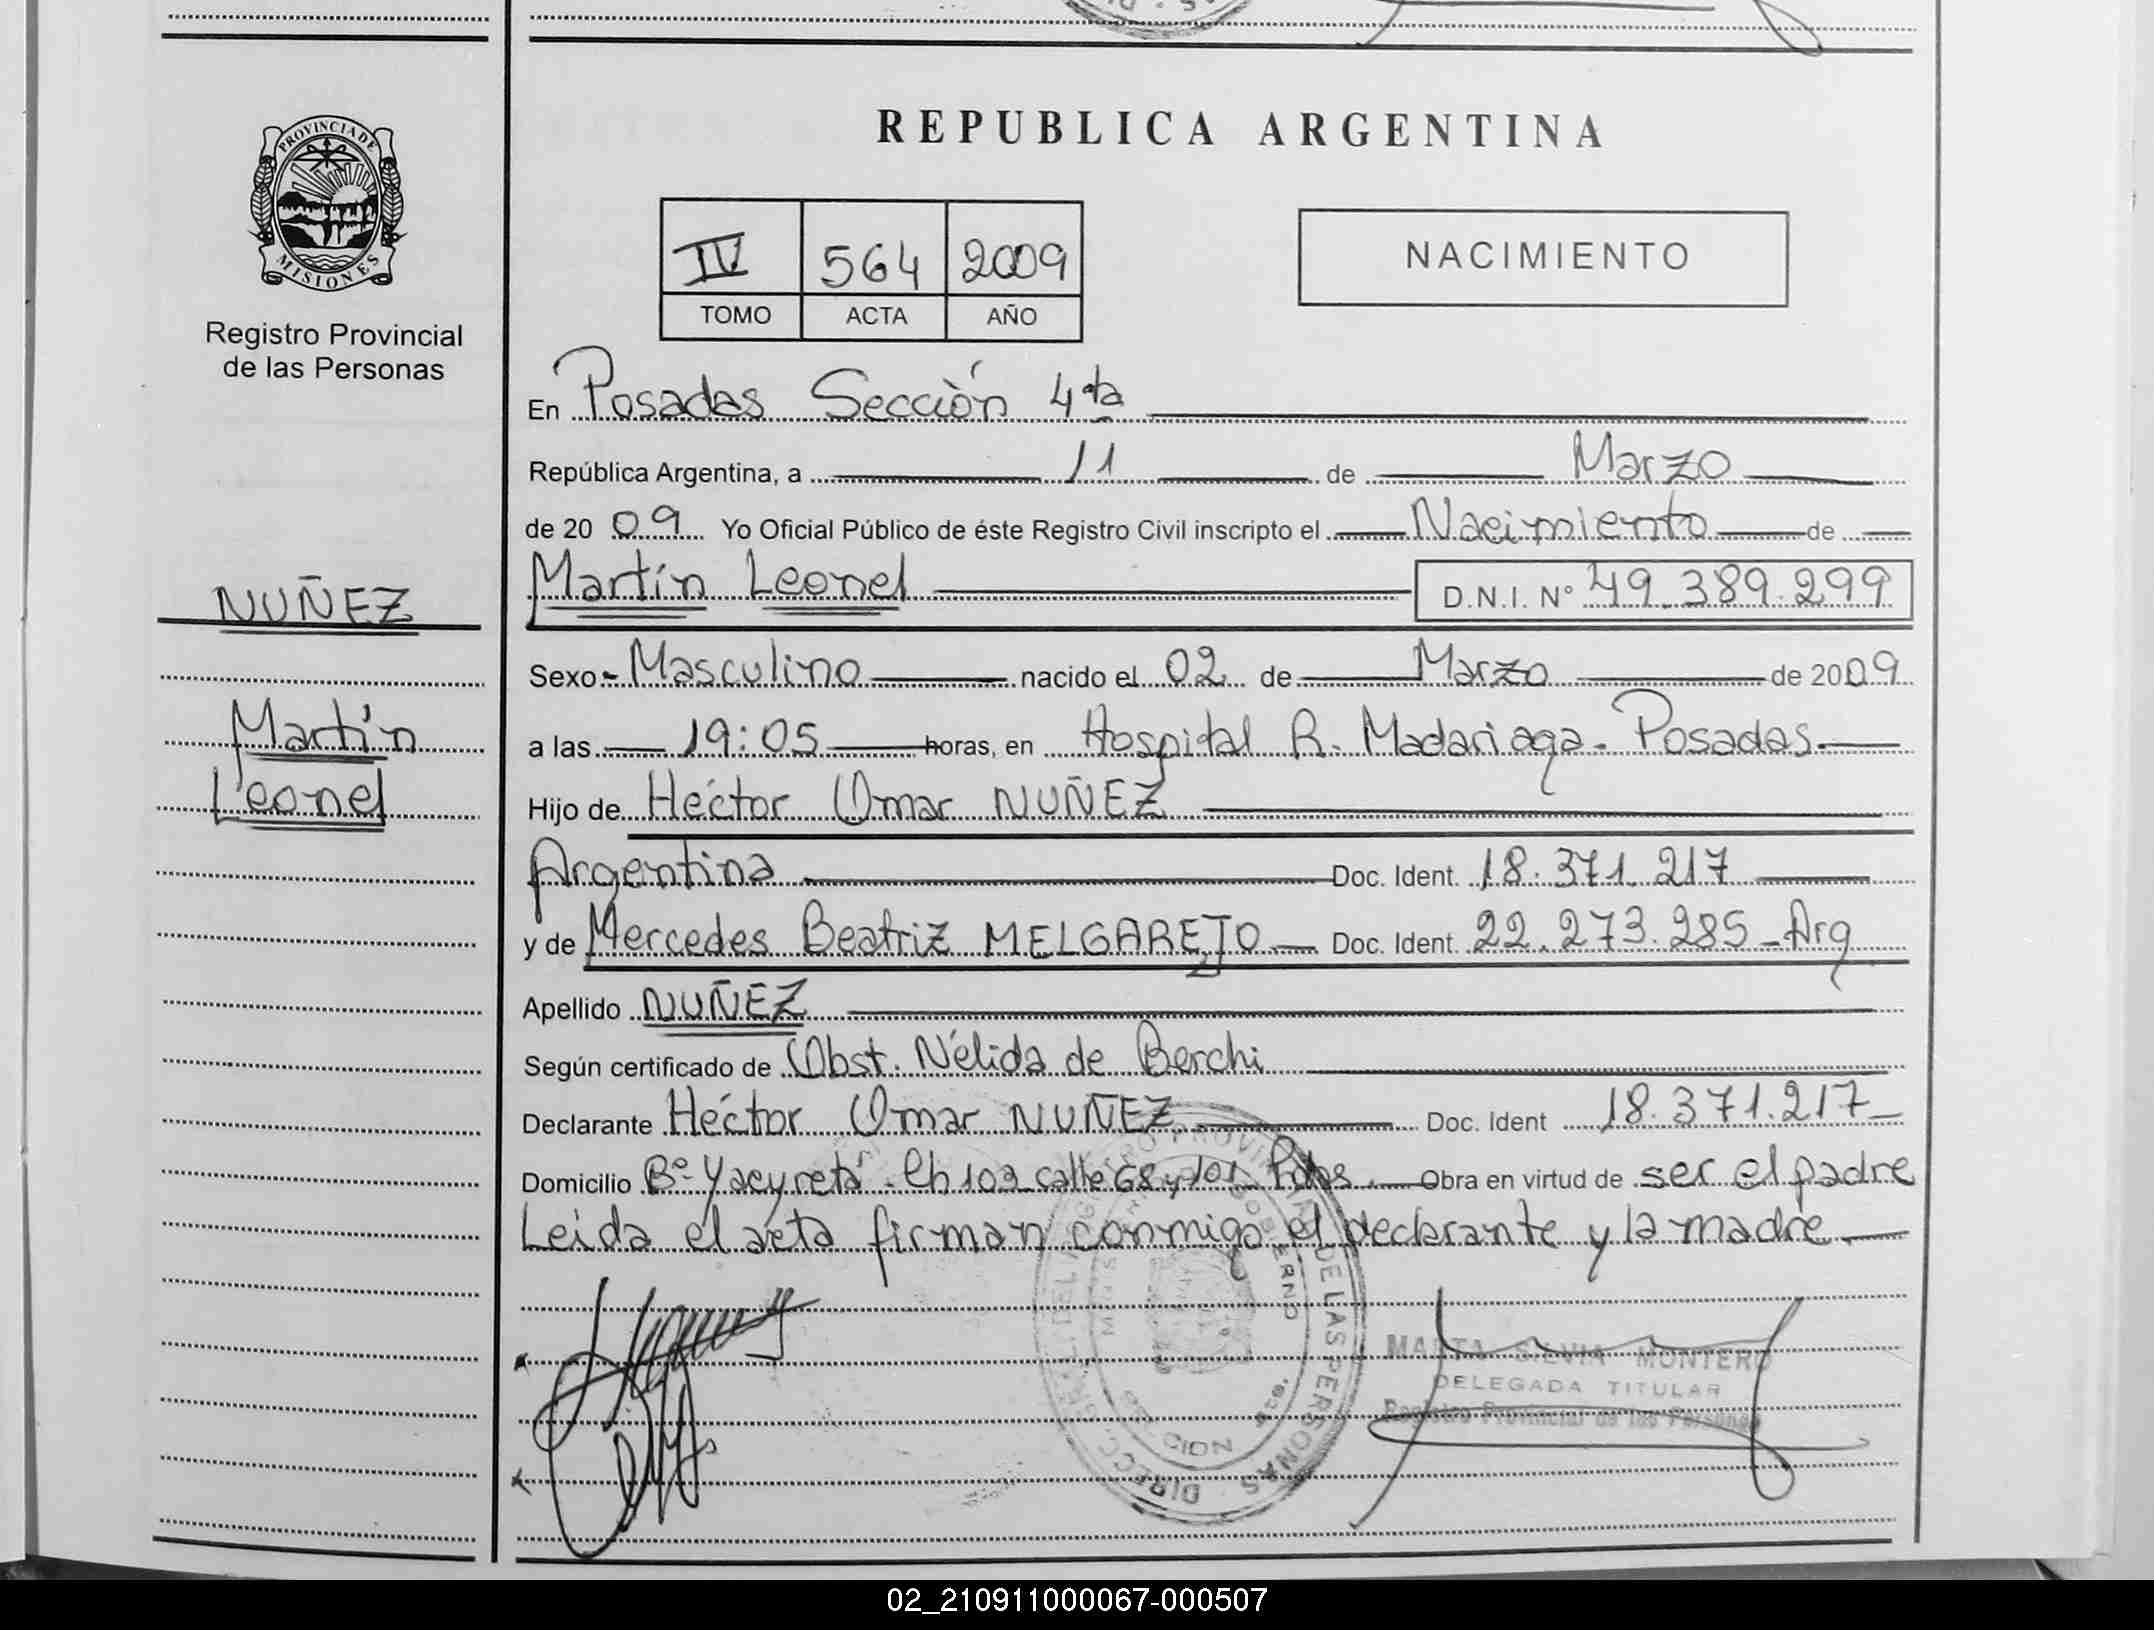 PROVINCIA DE
MISIONES
Registro Provincial
de las Personas
NUÑEZ
Martín
Leonel
REPUBLICA ARGENTINA
IV 564 2009
TOMO ACTA AÑO
NACIMIENTO
En Posadas Sección 4ta
República Argentina, a 11 de Marzo
de 2009 Yo Oficial Público de éste Registro Civil inscripto el Nacimiento de
Martín Leonel D.N.I. N° 49.389.299
Sexo Masculino nacido el 02 de Marzo de 2009
a las 19:05 horas, en Hospital R. Madariaga - Posadas
Hijo de Héctor Omar NUÑEZ
Argentina Doc. Ident. 18.371.217
y de Mercedes Beatriz MELGAREJO Doc. Ident. 22.273.285 - Arg
Apellido NUÑEZ
Según certificado de Obst. Nélida de Berchi
Declarante Héctor Omar NUÑEZ Doc. Ident 18.371.217
Domicilio B° Yacyretá - Ch 102 calle 68 y 101 Pdas. Obra en virtud de ser el padre
Leida el acta firman conmigo el declarante y la madre
MARTA SILVIA MONTERO
DELEGADA TITULAR
Registro Provincial de las Personas
02_210911000067-000507